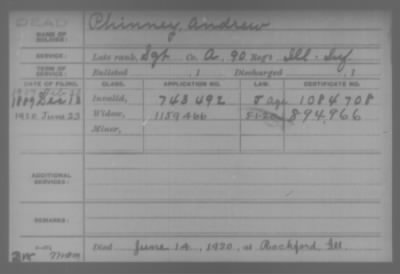 DEAD
NAME OF SOLDIER: Phinney Andrew
SERVICE: Late rank, Sgt Co. A, 90 Reg't Ill. Inf
TERM OF SERVICE: Enlisted , 1 Discharged , 1
DATE OF FILING. CLASS. APPLICATION NO. LAW. CERTIFICATE NO.
1889 Dec Invalid, 743492 J Age 1084708
1920 June 23 Widow, 1159466 5-1-20 894,966
Minor,
ADDITIONAL SERVICES:
REMARKS:
Died June 14, 1920, at Rockford, Ill.